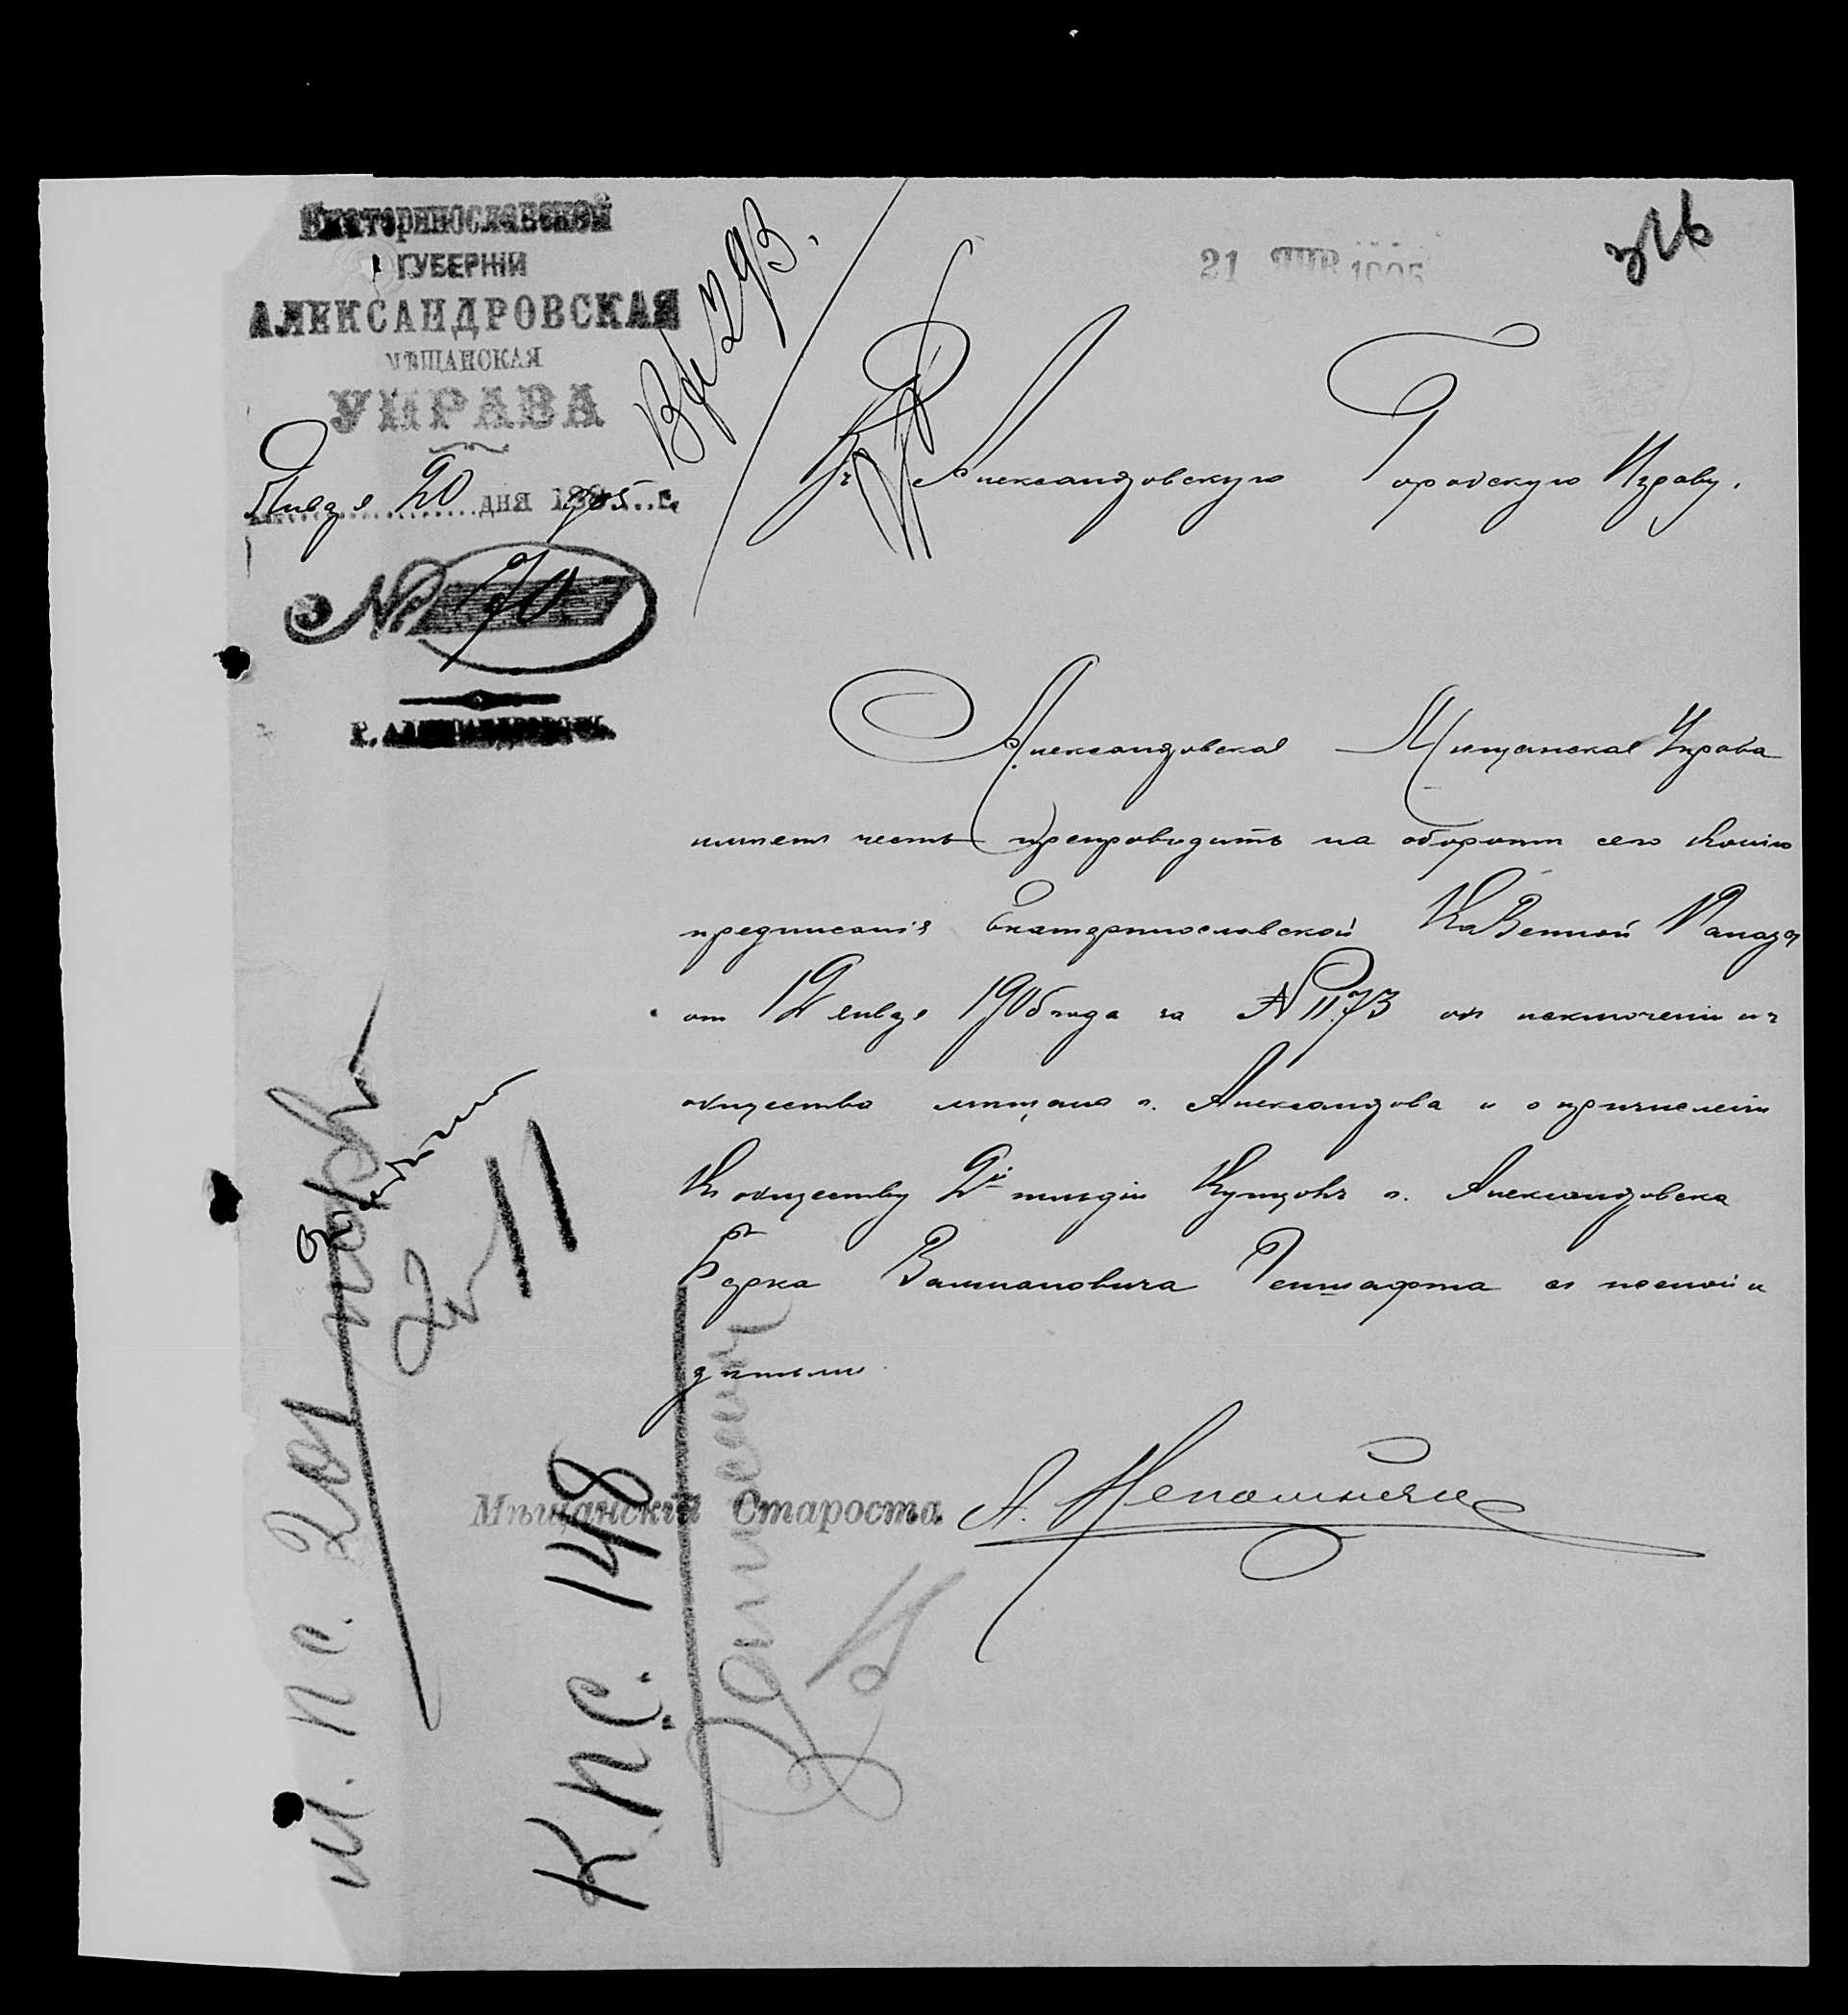 Екатеринославской
ГУБЕРНІИ
АЛЕКСАНДРОВСКАЯ
МѢЩАНСКАЯ
УПРАВА
Января 20 дня 1905 г.
№ 70
Г. АЛЕКСАНДРОВСКЪ.
Вх 293.
21 ЯНВ 1905
Въ Александровскую Городскую Управу.
Александровская Мѣщанская Управа
имѣетъ честь препроводить на оборотѣ сего копію
предписанія Екатеринославской Казенной Палаты
отъ 12 января 1905 года за № 1173 объ исключеніи изъ
общества мѣщанъ г. Александровска и о причисленіи
къ обществу 2й гильдіи купцовъ г. Александровска
Берка Залмановича с женой и
дѣтьми
Мѣщанскій Староста А. Непомнящій
М. п с. 201
К. п. с. 148